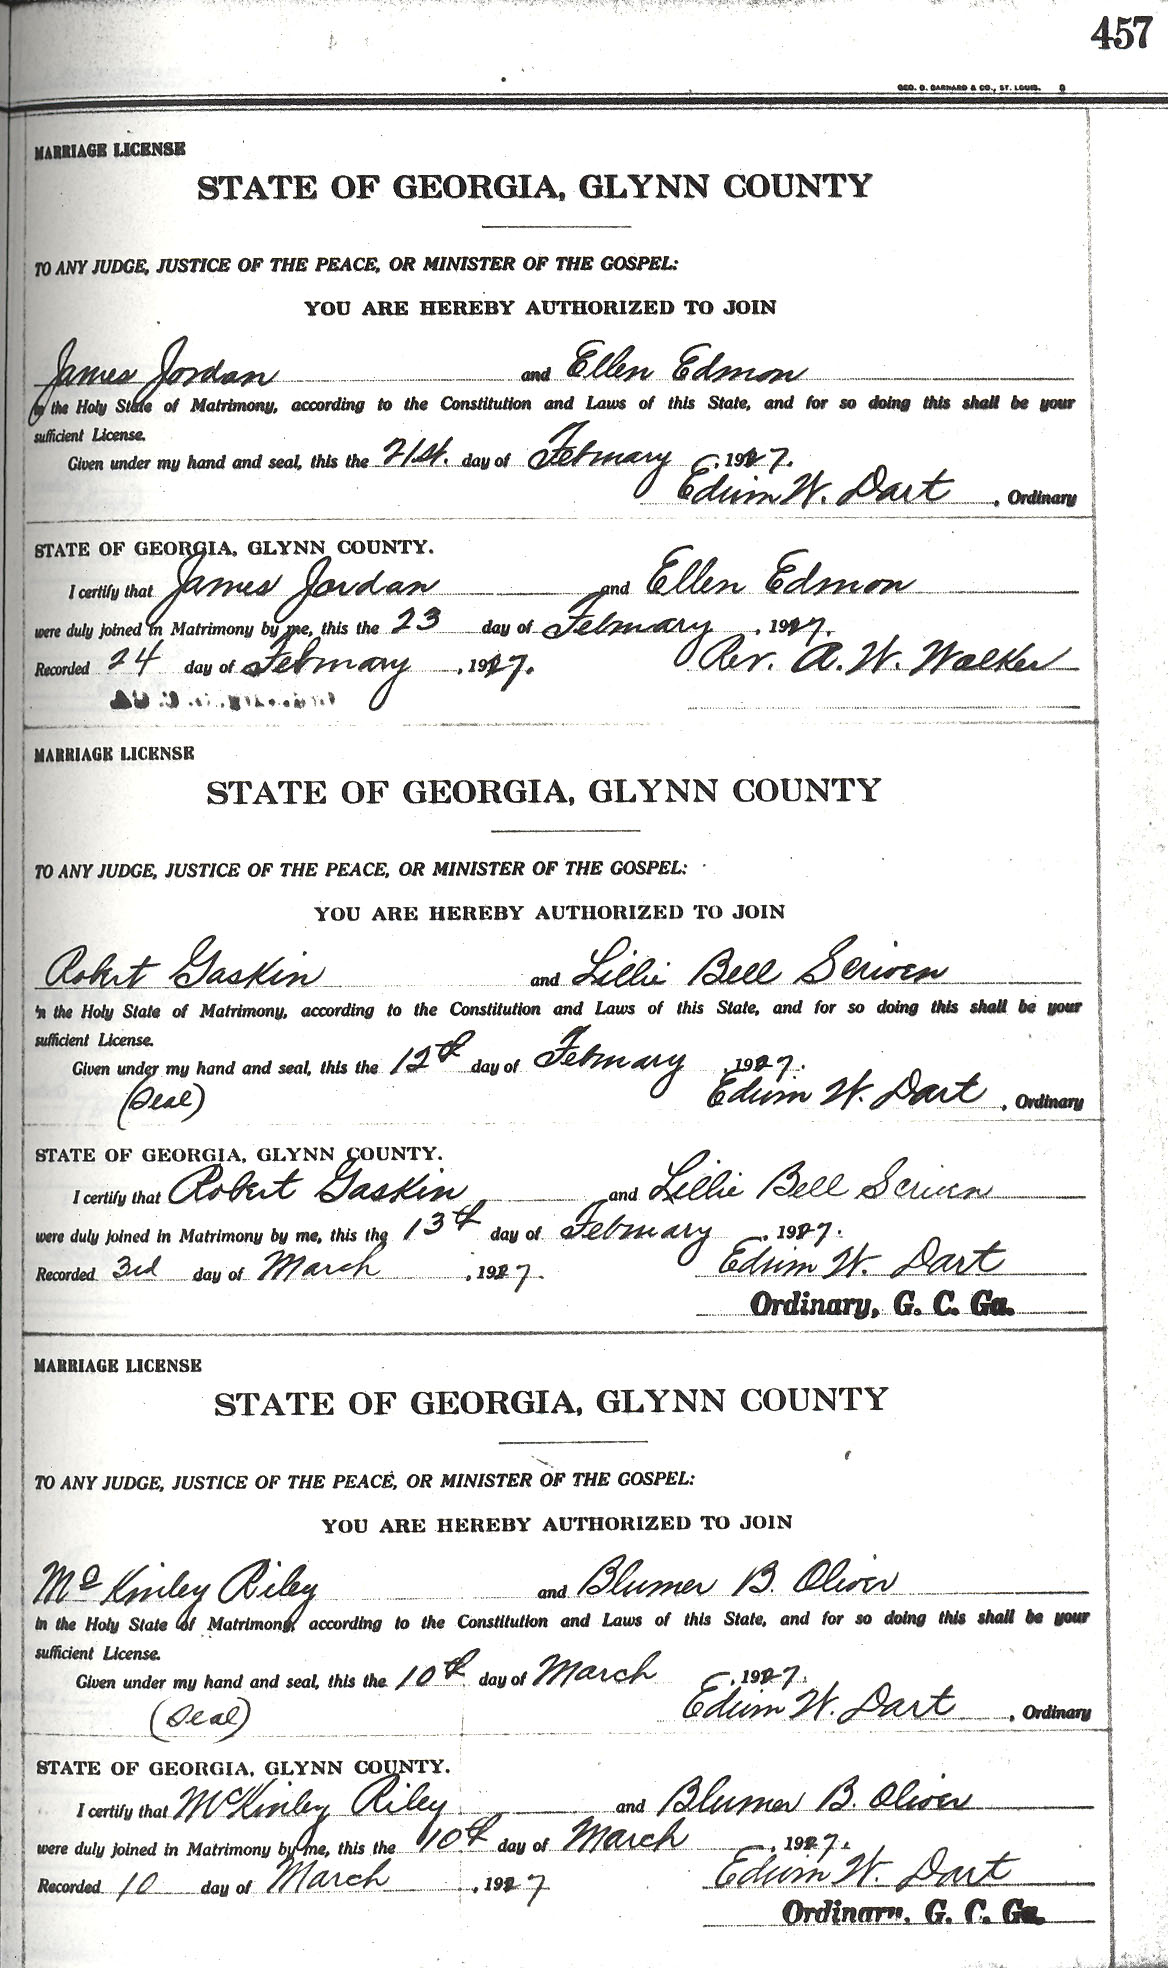 457
GEO. D. BARNARD & CO., ST. LOUIS.
MARRIAGE LICENSE
STATE OF GEORGIA, GLYNN COUNTY
TO ANY JUDGE, JUSTICE OF THE PEACE, OR MINISTER OF THE GOSPEL:
YOU ARE HEREBY AUTHORIZED TO JOIN
James Jordan and Ellen Edmon
in the Holy State of Matrimony, according to the Constitution and Laws of this State, and for so doing this shall be your
sufficient License.
Given under my hand and seal, this the 21st. day of February, 1927.
Edwin W. Dart, Ordinary
STATE OF GEORGIA, GLYNN COUNTY.
I certify that James Jordan and Ellen Edmon
were duly joined in Matrimony by me, this the 23 day of February, 1927.
Recorded 24 day of February, 1927. Rev. A. W. Walker
MARRIAGE LICENSE
STATE OF GEORGIA, GLYNN COUNTY
TO ANY JUDGE, JUSTICE OF THE PEACE, OR MINISTER OF THE GOSPEL:
YOU ARE HEREBY AUTHORIZED TO JOIN
Robert Gaskin and Lillie Bell Scriven
in the Holy State of Matrimony, according to the Constitution and Laws of this State, and for so doing this shall be your
sufficient License.
Given under my hand and seal, this the 12th day of February, 1927.
(Seal) Edwin W. Dart, Ordinary
STATE OF GEORGIA, GLYNN COUNTY.
I certify that Robert Gaskin and Lillie Bell Scriven
were duly joined in Matrimony by me, this the 13th day of February, 1927.
Recorded 3rd day of March, 1927. Edwin W. Dart
Ordinary, G. C. Ga.
MARRIAGE LICENSE
STATE OF GEORGIA, GLYNN COUNTY
TO ANY JUDGE, JUSTICE OF THE PEACE, OR MINISTER OF THE GOSPEL:
YOU ARE HEREBY AUTHORIZED TO JOIN
Mc Kinley Riley and Blumer B. Oliver
in the Holy State of Matrimony, according to the Constitution and Laws of this State, and for so doing this shall be your
sufficient License.
Given under my hand and seal, this the 10th day of March, 1927.
(Seal) Edwin W. Dart, Ordinary
STATE OF GEORGIA, GLYNN COUNTY.
I certify that McKinley Riley and Blumer B. Oliver
were duly joined in Matrimony by me, this the 10th day of March, 1927.
Recorded 10 day of March, 1927 Edwin W. Dart
Ordinary, G. C. Ga.